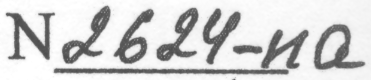 N 2624-па